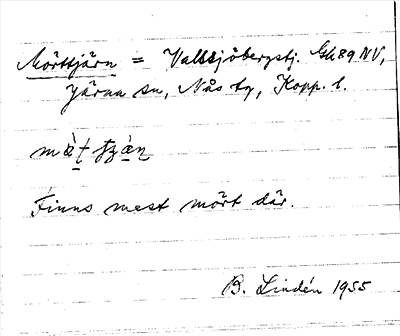 Mörttjärn = Vallsjöbergstj. Gk 89 NV,
Järna sn, Nås tg, Kopp. l.
Finns mest mört där.
B. Lindén 1955